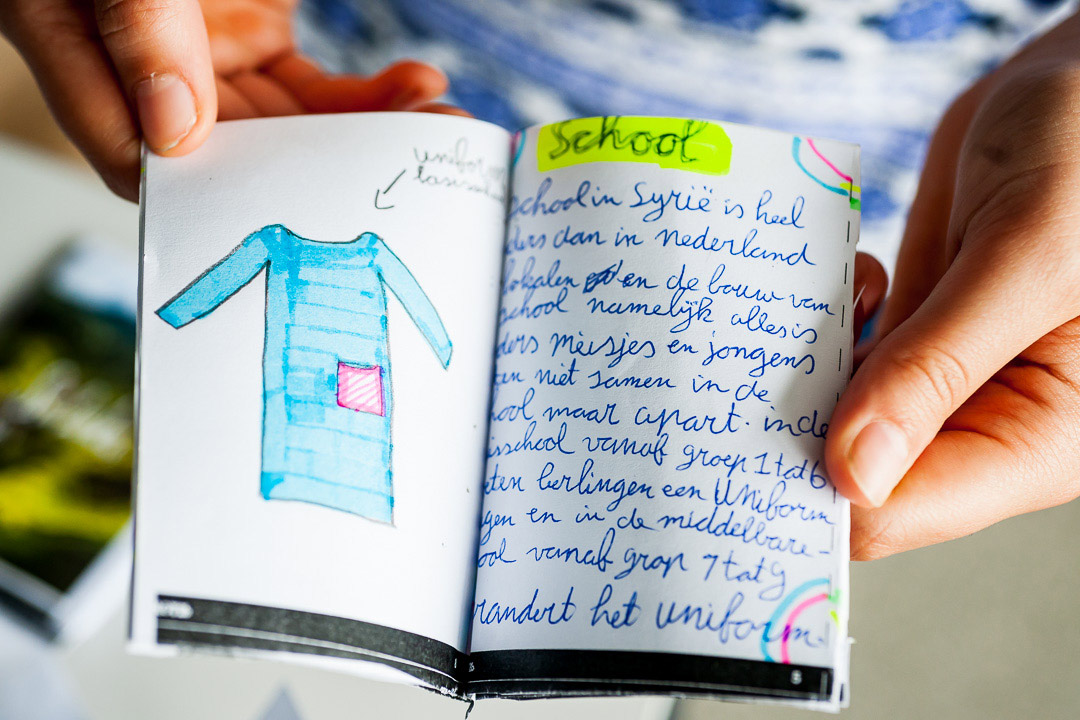 unifor
School
School in Syrië is heel
ders dan in nederland
lokalen en de bouw van
chool namelijk alles is
ders meisjes en jongens
ten niet samen in de
hool maar apart. in de
isschool vanaf groep 1 tat 6
eten berlingen een UNiform
gen en in de middelbare-
ool vanaf grop 7 tat 9
randert het uniform.
8